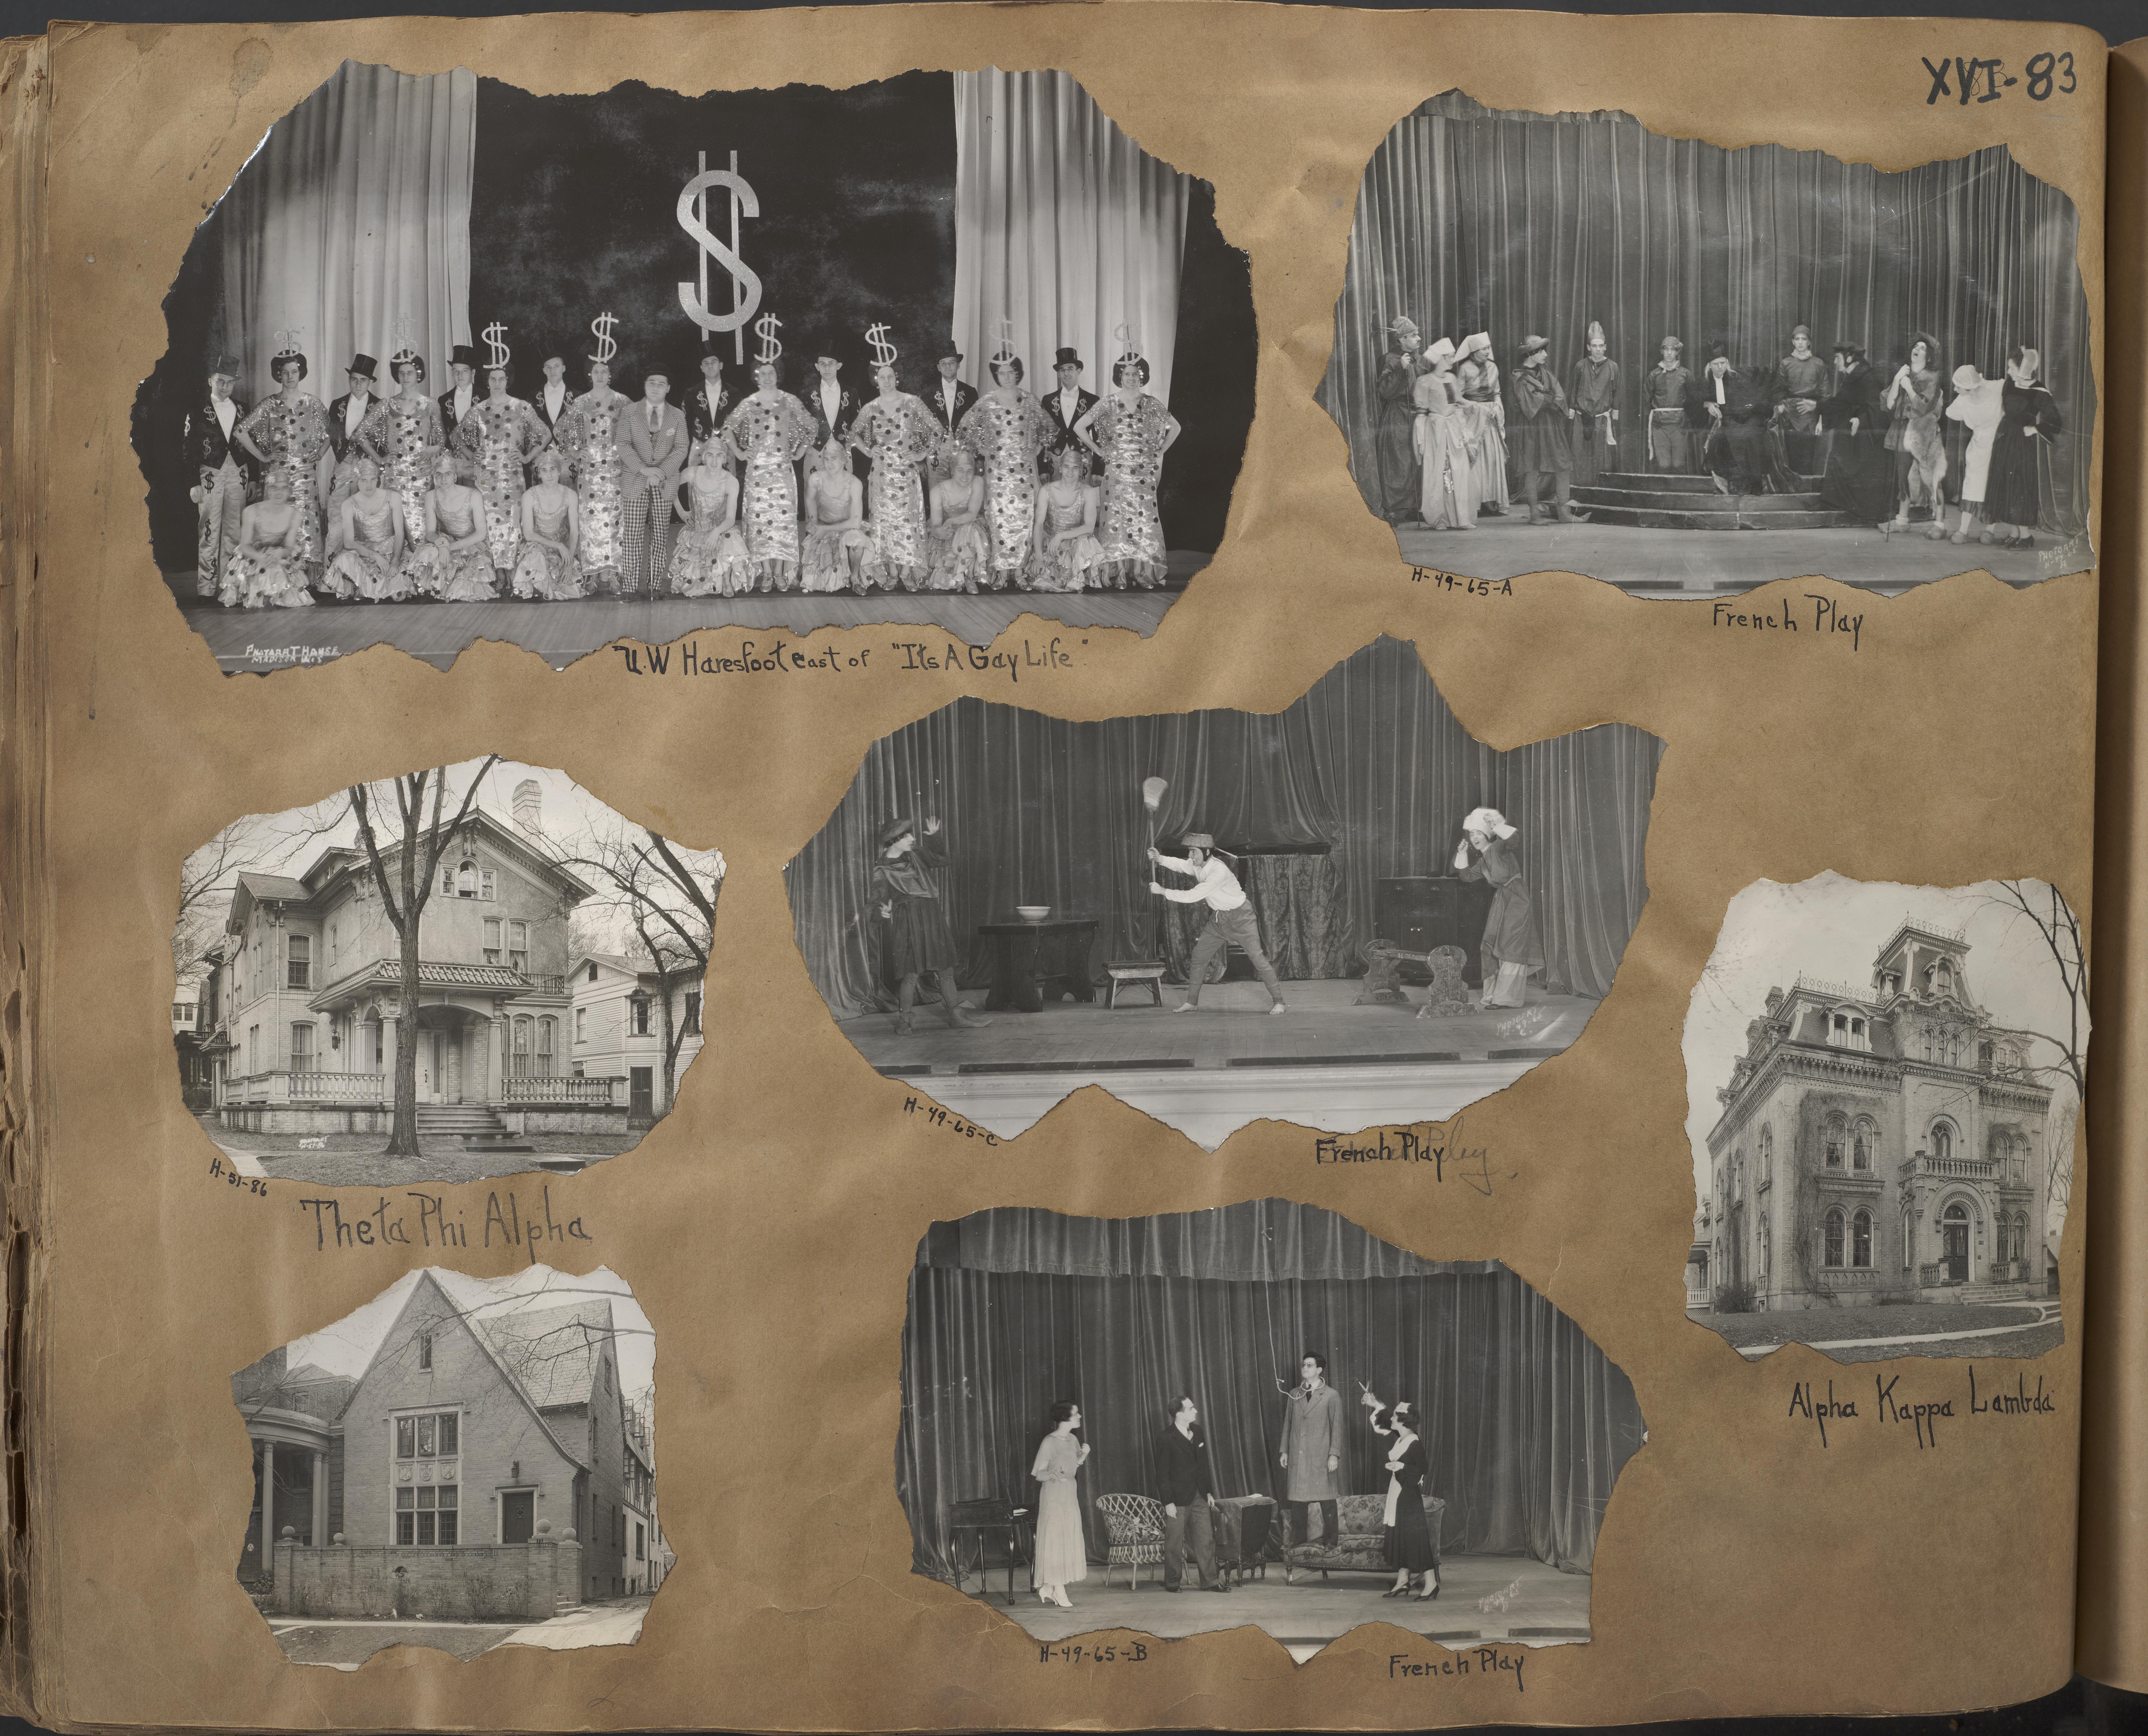 XVI-83
PHOTOART HOUSE
MADISON WIS
UW Haresfoot cast of "Its A Gay Life"
H-49-65-A
French Play
H-51-86
Theta Phi Alpha
H-49-65-C
French Play
Alpha Kappa Lambda
H-49-65-B
French Play